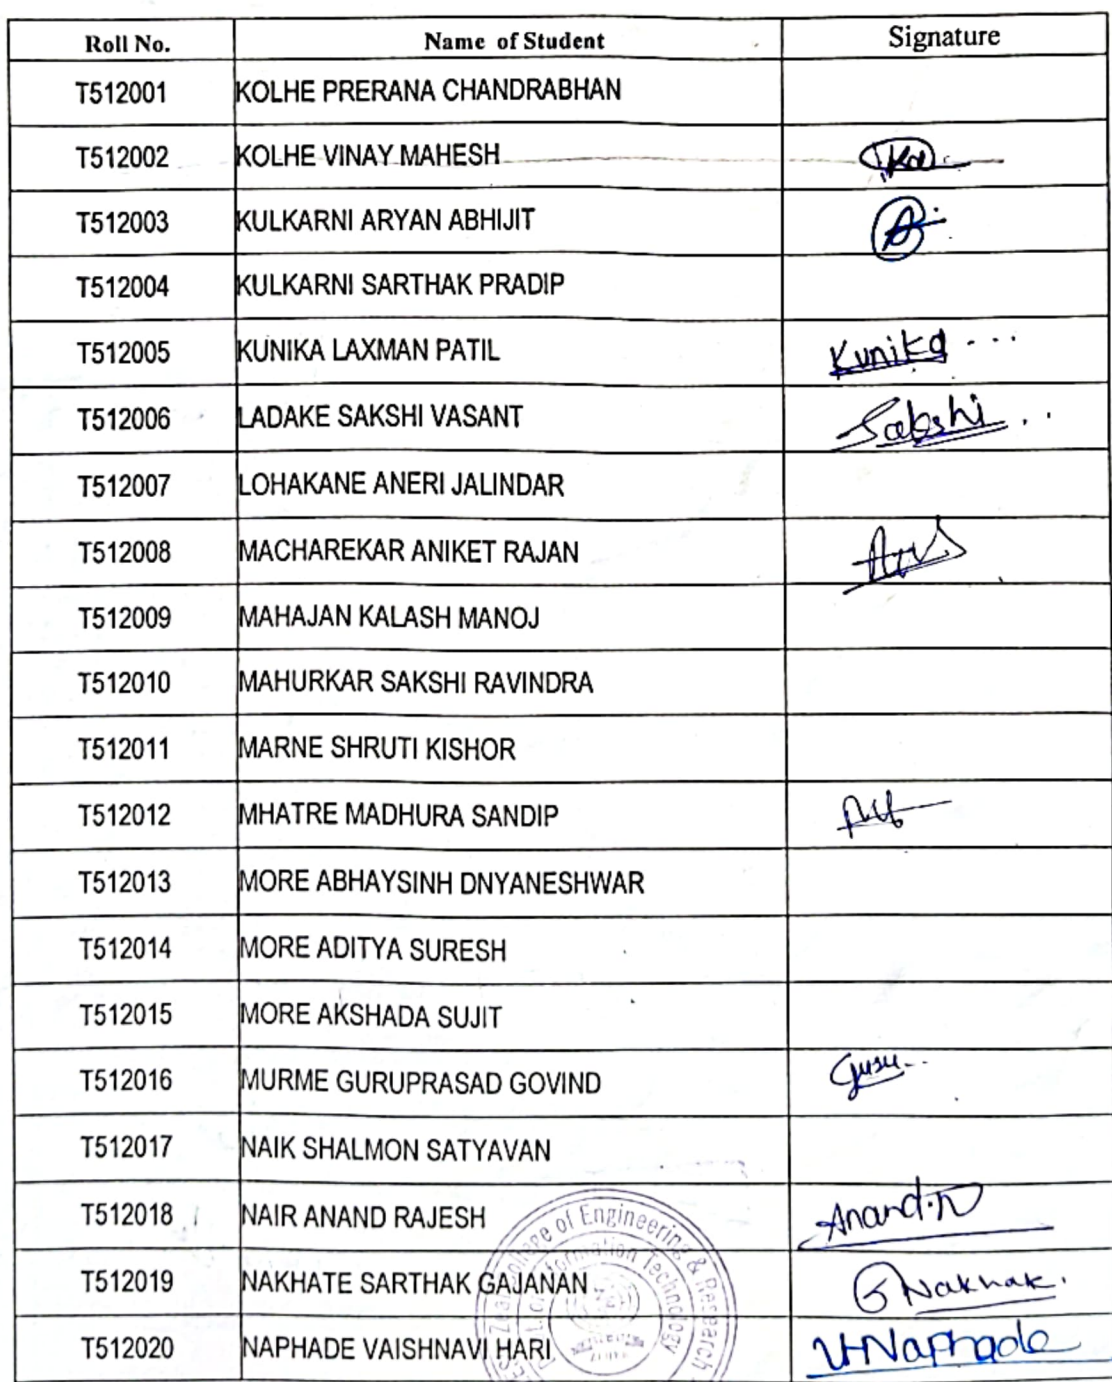 Roll No. Name of Student Signature
T512001 KOLHE PRERANA CHANDRABHAN
T512002 KOLHE VINAY MAHESH
T512003 KULKARNI ARYAN ABHIJIT
T512004 KULKARNI SARTHAK PRADIP
T512005 KUNIKA LAXMAN PATIL Kunika ...
T512006 LADAKE SAKSHI VASANT Sakshi ..
T512007 LOHAKANE ANERI JALINDAR
T512008 MACHAREKAR ANIKET RAJAN
T512009 MAHAJAN KALASH MANOJ
T512010 MAHURKAR SAKSHI RAVINDRA
T512011 MARNE SHRUTI KISHOR
T512012 MHATRE MADHURA SANDIP
T512013 MORE ABHAYSINH DNYANESHWAR
T512014 MORE ADITYA SURESH
T512015 MORE AKSHADA SUJIT
T512016 MURME GURUPRASAD GOVIND Guru..
T512017 NAIK SHALMON SATYAVAN
T512018 NAIR ANAND RAJESH Anand.N
T512019 NAKHATE SARTHAK GAJANAN
T512020 NAPHADE VAISHNAVI HARI VHNaphade
of Engineering & Research
Information Technology